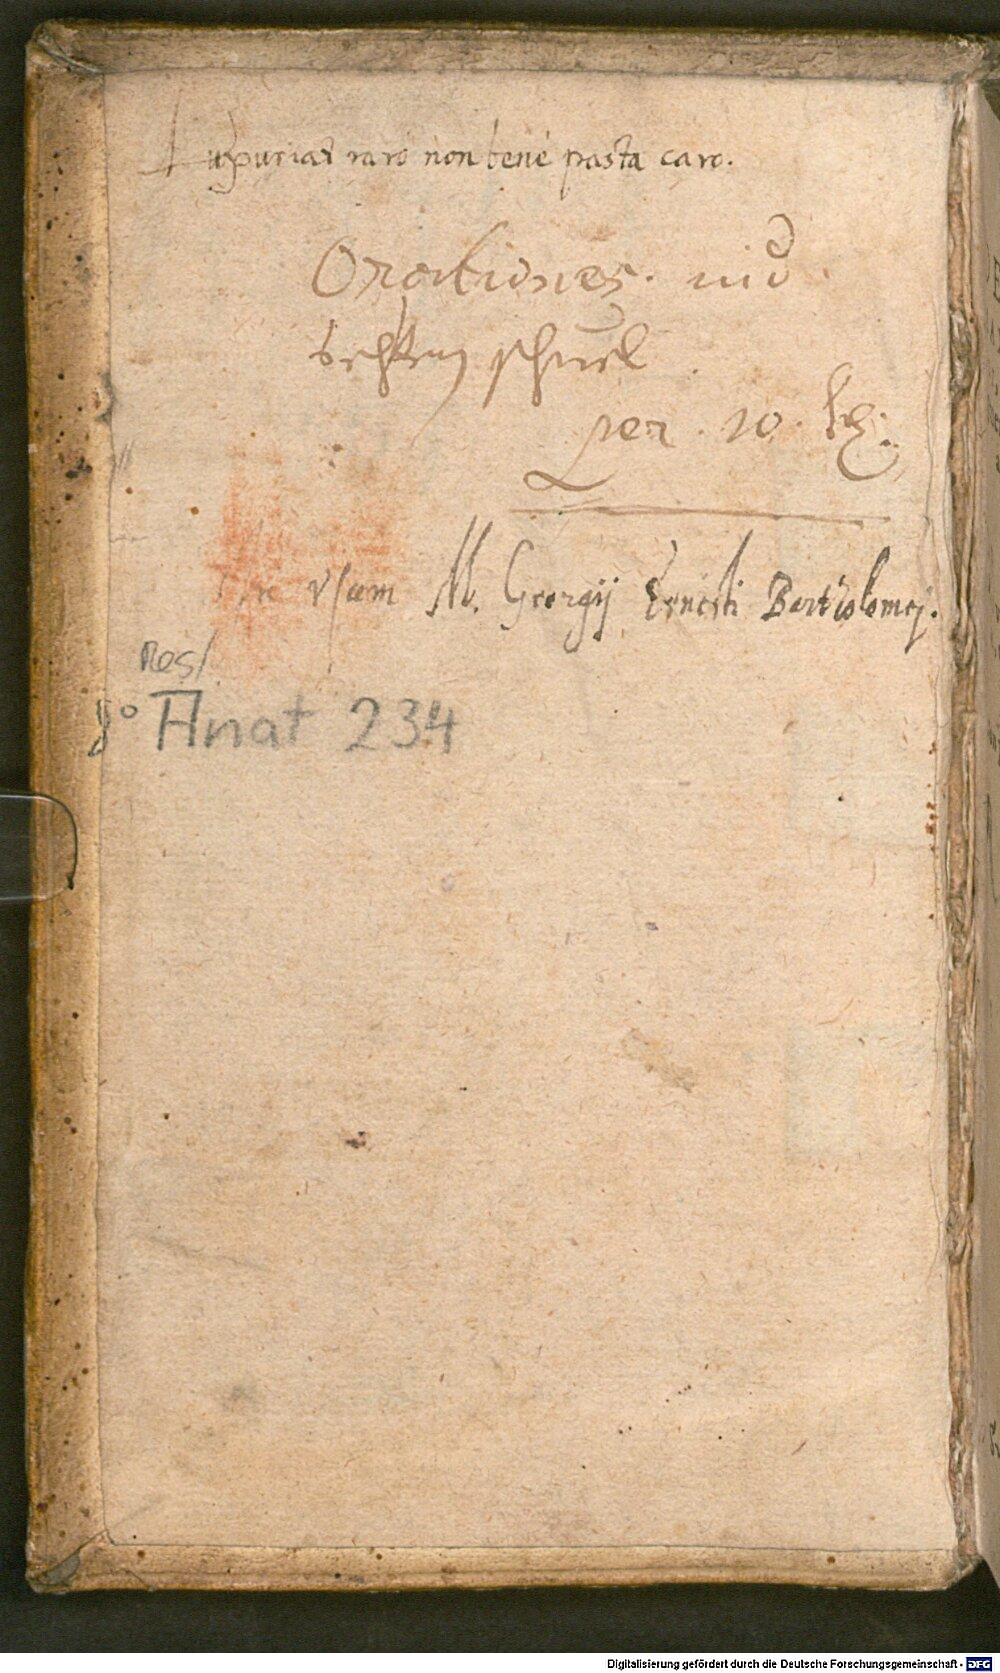 Luxuriat raro non bene pasta caro.
Orationes. und
per. 10. kr.
vsum M. Georgij Ernesti Bartholomej.
Res/
8° Anat 234
Digitalisierung gefördert durch die Deutsche Forschungsgemeinschaft - DFG